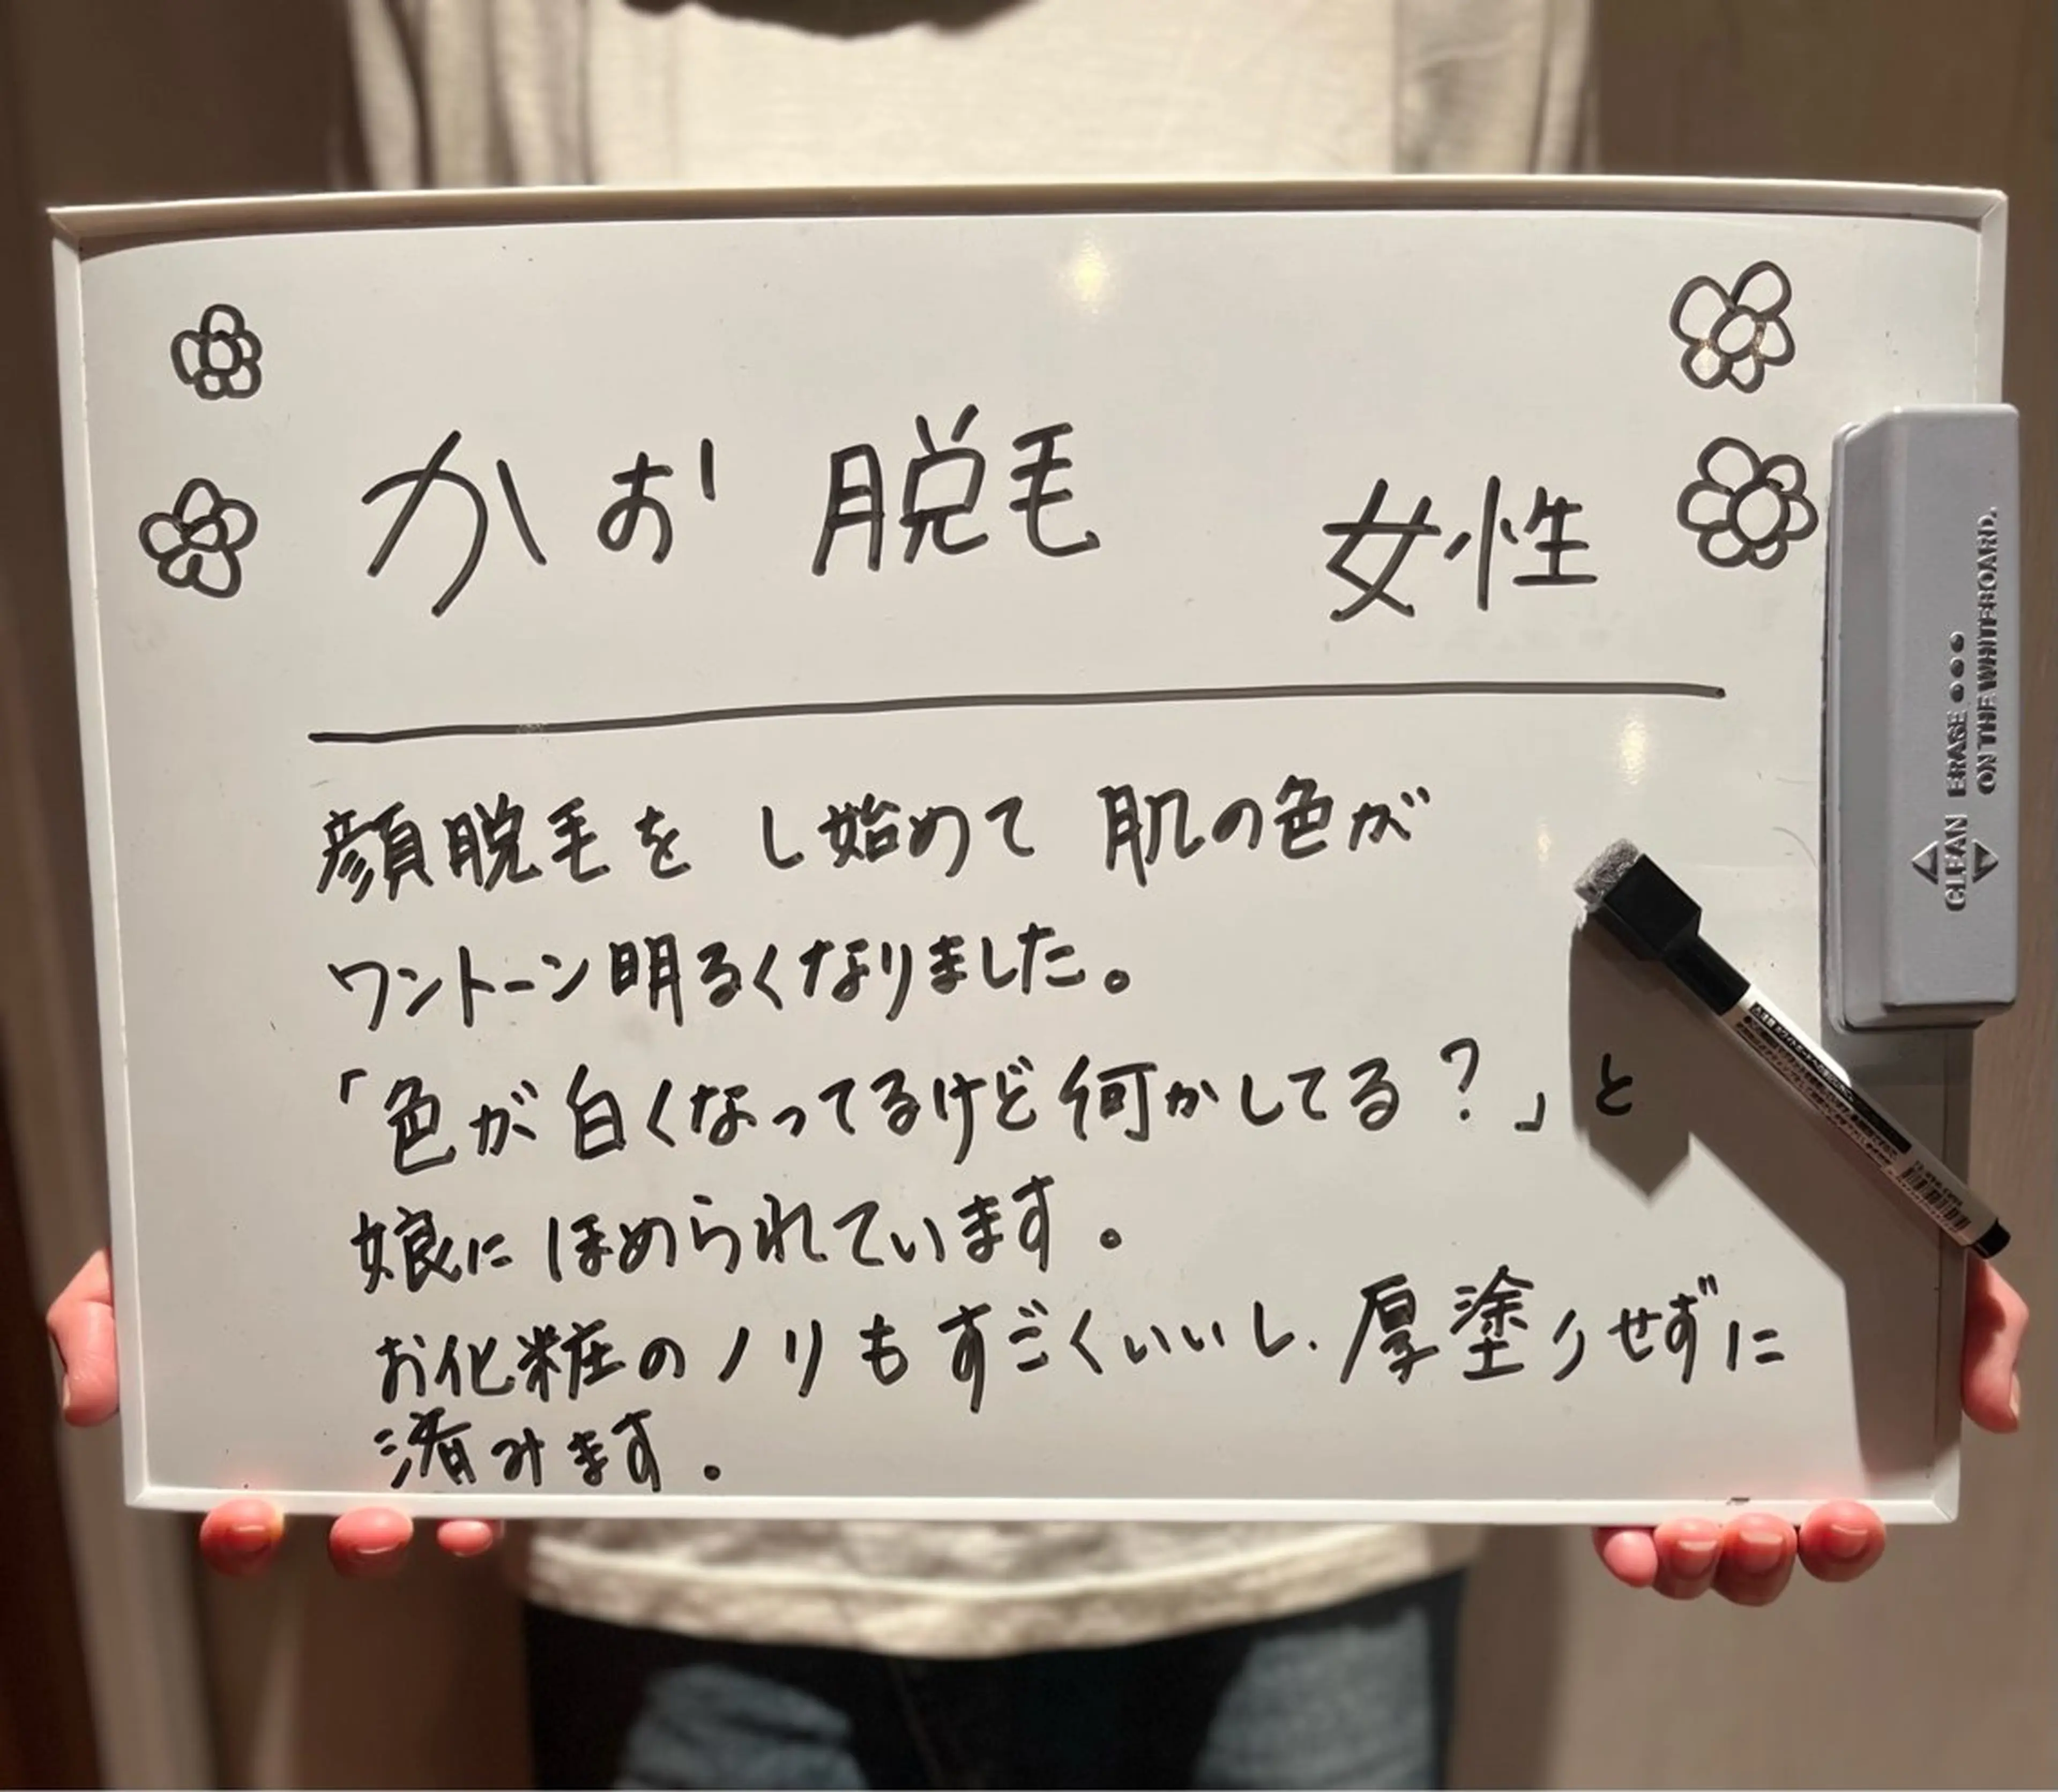 かお 脱毛 女性
顔脱毛を し始めて 肌の色が
ワントーン明るくなりました。
「色が白くなってるけど何かしてる?」と
娘に ほめられています。
お化粧のノリも すごくいいし、厚塗りせずに
済みます。
CLEAN ERASE ●●●
ON THE WHITEBOARD.